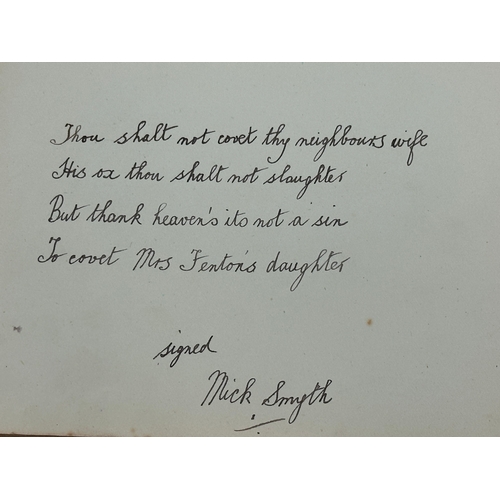 Thou shalt not covet thy neighbours wife
His ox thou shalt not slaughter
But thank heaven's its not a sin
To covet Mrs Fenton's daughter
signed
Mick Smyth